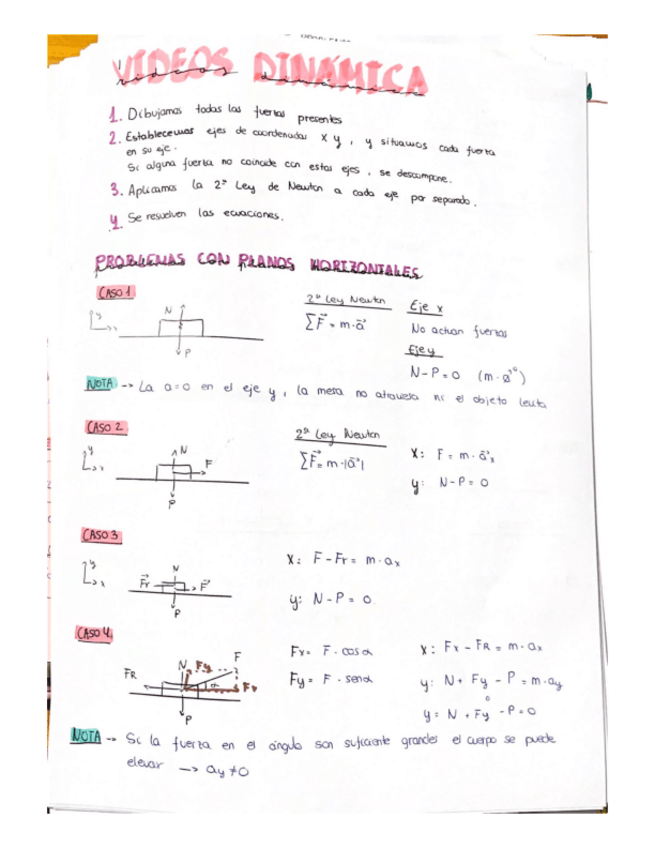 VIDEOS DINÁMICA
1. Dibujamos todas las fuerzas presentes
2. Establecemos ejes de coordenadas x y, y situamos cada fuerza
en su eje.
Si alguna fuerza no coincide con estos ejes, se descompone.
3. Aplicamos la 2ª Ley de Newton a cada eje por separado.
4. Se resuelven las ecuaciones.
PROBLEMAS CON PLANOS HORIZONTALES
CASO 1
y
x
N
P
2ª Ley Newton
∑F⃗ = m·a⃗
Eje x
No actúan fuerzas
Eje y
N-P=0 (m·a⁰)
NOTA -> La a=0 en el eje y, la mesa no atraviesa ni el objeto levita
CASO 2
y
x
N
F
P
2ª Ley Newton
∑F⃗ = m·|a⃗|
x: F = m·a⃗x
y: N-P=0
CASO 3
y
x
N
F⃗r
F⃗
P
x: F-Fr = m·ax
y: N-P=0
CASO 4
FR
N
Fy
F
α
Fx
P
Fx = F·cosα
Fy = F·senα
x: Fx - FR = m·ax
y: N + Fy - P = m·ay
0
y = N + Fy - P = 0
NOTA -> Si la fuerza en el ángulo son suficiente grandes el cuerpo se puede
elevar -> ay ≠ 0